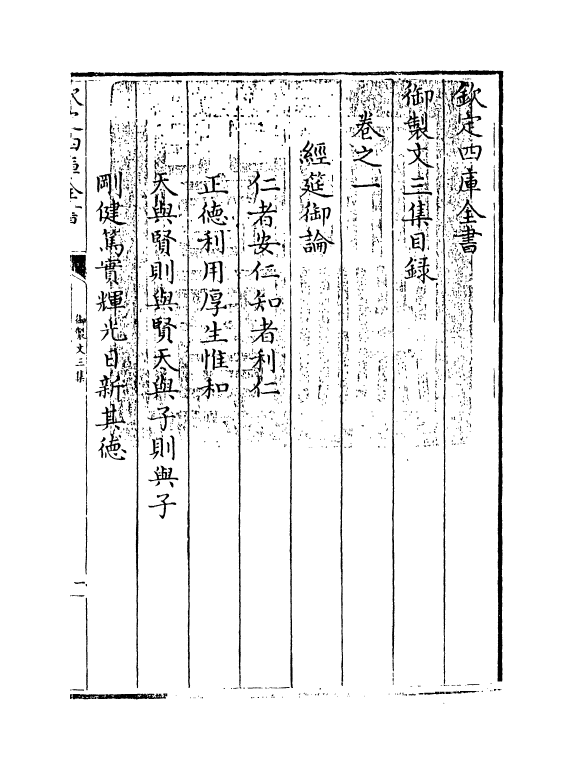 欽定四庫全書
御製文三集目録
卷之一
經筵御論
仁者安仁知者利仁
正徳利用厚生惟和
天與賢則與賢天與子則與子
剛健篤實輝光日新其徳
欽定四庫全書
御製文三集
一